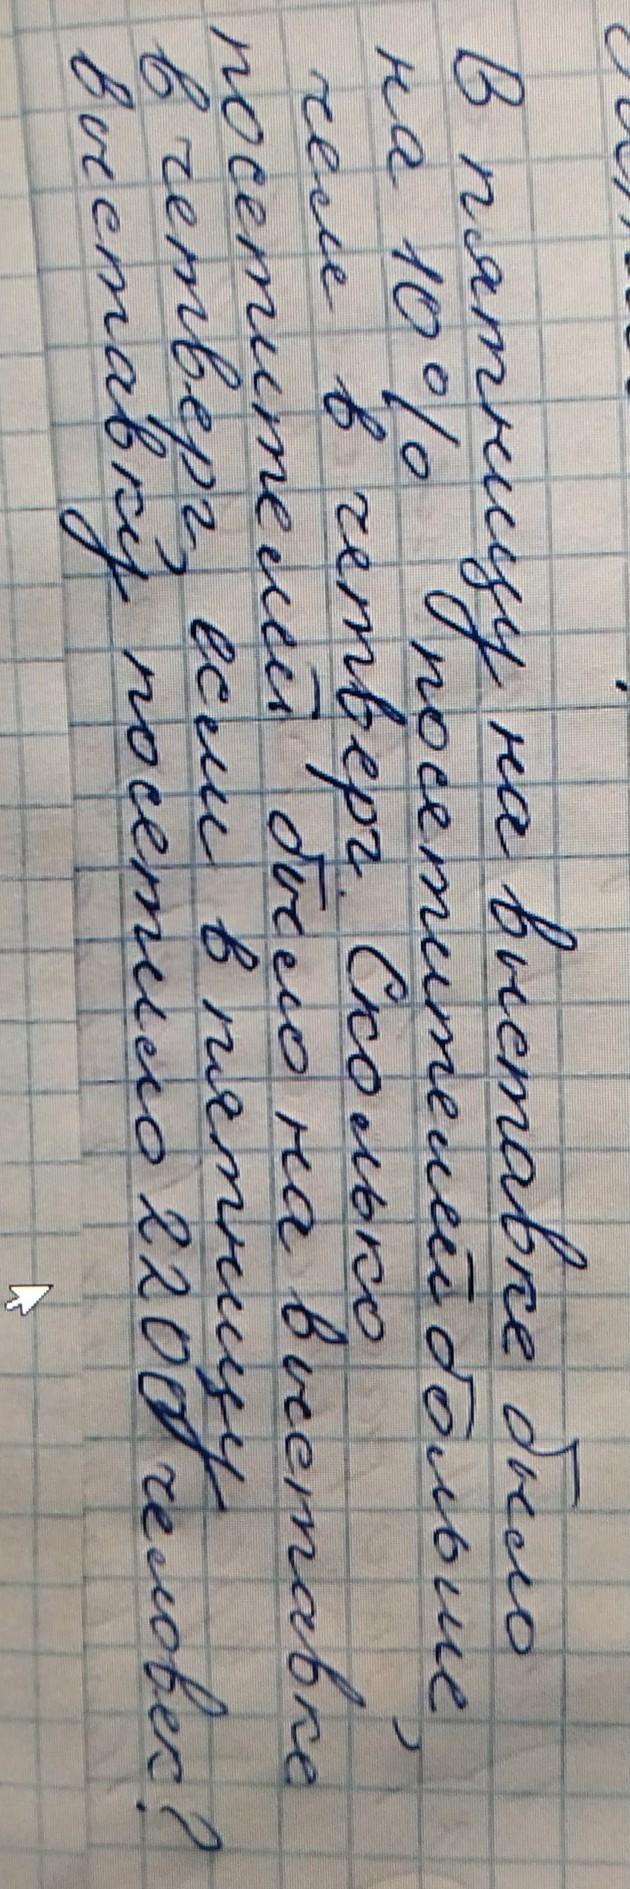 В пятницу на выставке было
на 10% посетителей больше,
чем в четверг. Сколько
посетителей было на выставке
в четверг, если в пятницу
выставку посетило 2200 человек?